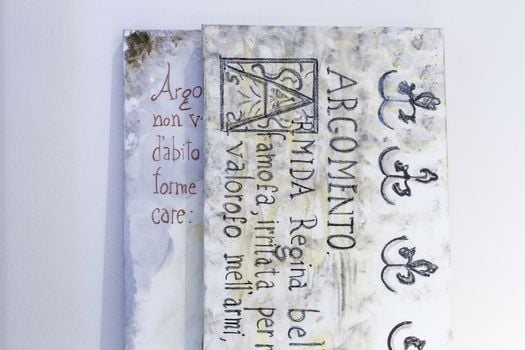 Argo
non v
d'abito
forme
care:
ARGOMENTO.
ARMIDA Regina bel
famofa, irritata per
valorofo mell'armi,